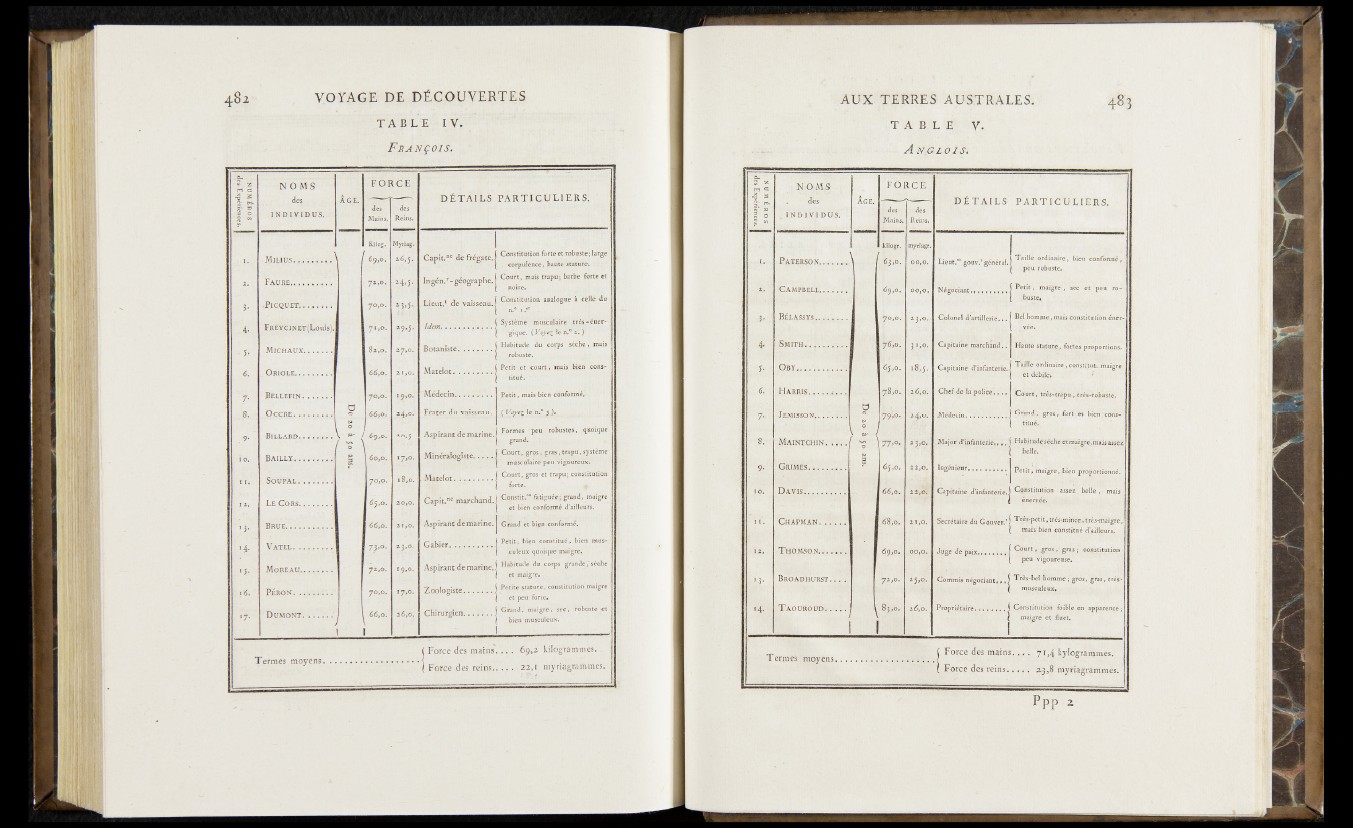 482 VOYAGE DE DÉCOUVERTES
TABLE IV.
FRANÇOIS.
NUMÉROS des Expériences. NOMS des INDIVIDUS. ÂGE. FORCE des Mains. des Reins. DÉTAILS PARTICULIERS.
Kilog. Myriag.
De 20 à 50 ans.
1. MILIUS......... 69,0. 26,5. Capit.ne de frégate. Constitution forte et robuste; large
corpulence, haute stature.
2. FAURE.......... 72,0. 24,5. Ingén.r-géographe. Court, mais trapu; barbe forte et
noire.
3. PICQUET........ 70,0. 23,5. Lieut.t de vaisseau. Constitution analogue à celle du
n.° 1.er
4. FREYCINET (Louis). 71,0. 29,5. Idem............ Système musculaire très-éner-
gique. (Voyez le n.° 2.)
5. MICHAUX....... 82,0. 27,0. Botaniste........ Habitude du corps sèche, mais
robuste.
6. ORIOLE......... 66,0. 21,0. Matelot......... Petit et court, mais bien cons-
titué.
7. BELLEFIN........ 70,0. 19,0. Médecin......... Petit, mais bien conformé.
8. OCCRE......... 66,0. 24,0. Frater du vaisseau. (Voyez le n.° 3.).
9. BILLARD........ 69,0. 20,5 Aspirant de marine. Formes peu robustes, quoique
grand.
10. BAILLY......... 60,0. 17,0. Minéralogiste..... Court, gros, gras, trapu, système
musculaire peu vigoureux.
11. SOUPAL........ 70,0. 18,0. Matelot......... Court, gros et trapu; constitution
forte.
12. LE CORS........ 65,0. 20,0. Capit.ne marchand. Constit.on fatiguée; grand, maigre
et bien conformé d'ailleurs.
13. BRUE........... 66,0. 21,0. Aspirant de marine. Grand et bien conformé.
14. VATEL.......... 73,0. 23,0. Gabier.......... Petit, bien constitué, bien mus-
culeux quoique maigre.
15. MOREAU........ 72,0. 19,0. Aspirant de marine. Habitude du corps grande, sèche
et maigre.
16. PÉRON......... 70,0. 17,0. Zoologiste....... Petite stature, constitution maigre
et peu forte.
17. DUMONT....... 66,0. 26,0. Chirurgien....... Grand, maigre, sec, robuste et
bien musculeux.
Termes moyens.................... Force des mains.... 69,2 kilogrammes.
Force des reins..... 22,1 myriagrammes.
AUX TERRES AUSTRALES. 483
TABLE V.
ANGLOIS.
NUMÉROS des Expériences. NOMS des INDIVIDUS. ÂGE. FORCE des Mains. des Reins. DÉTAILS PARTICULIERS.
kilogr. myriagr.
De 20 à 50 ans.
1. PATERSON....... 63,0. 00,0. Lieut.nt gouv.r général. Taille ordinaire, bien conformé,
peu robuste.
2. CAMPBELL....... 69,0. 00,0. Négociant.......... Petit, maigre, sec et peu ro-
buste.
3. BÉLASSYS........ 70,0. 23,0. Colonel d'artillerie... Bel homme, mais constitution éner-
vée.
4. SMITH.......... 76,0. 31,0. Capitaine marchand.. Haute stature, fortes proportions.
5. OBY............ 65,0. 18,5. Capitaine d'infanterie. Taille ordinaire, constitut. maigre
et débile.
6. HARRIS......... 78,0. 26,0. Chef de la police.... Court, très-trapu, très-robuste.
7. JEMISSON........ 79,0. 24,0. Médecin........... Grand, gras, fort et bien cons-
titué.
8. MAINTCHIN..... 77,0. 23,0. Major d'infanterie.... Habitude sèche et maigre, mais assez
belle.
9. GRIMES......... 65,0. 22,0. Ingénieur.......... Petit, maigre, bien proportionné.
10. DAVIS.......... 66,0. 22,0. Capitaine d'infanterie. Constitution assez belle, mais
énervée.
11. CHAPMAN...... 68,0. 21,0. Secrétaire du Gouver.r Très-petit, très-mince, très-maigre,
mais bien constitué d'ailleurs.
12. THOMSON....... 69,0. 00,0. Juge de paix........ Court, gros, gras; constitution
peu vigoureuse.
13. BROADHURST.... 72,0. 25,0. Commis négociant... Très-bel homme; gros, gras, très-
musculeux.
14. TAOUROUD..... 83,0. 26,0. Propriétaire........ Constitution faible en apparence;
maigre et fluet.
Termes moyens..................... Force des mains.... 71,4 kylogrammes.
Force des reins..... 23,8 myriagrammes.
Ppp 2